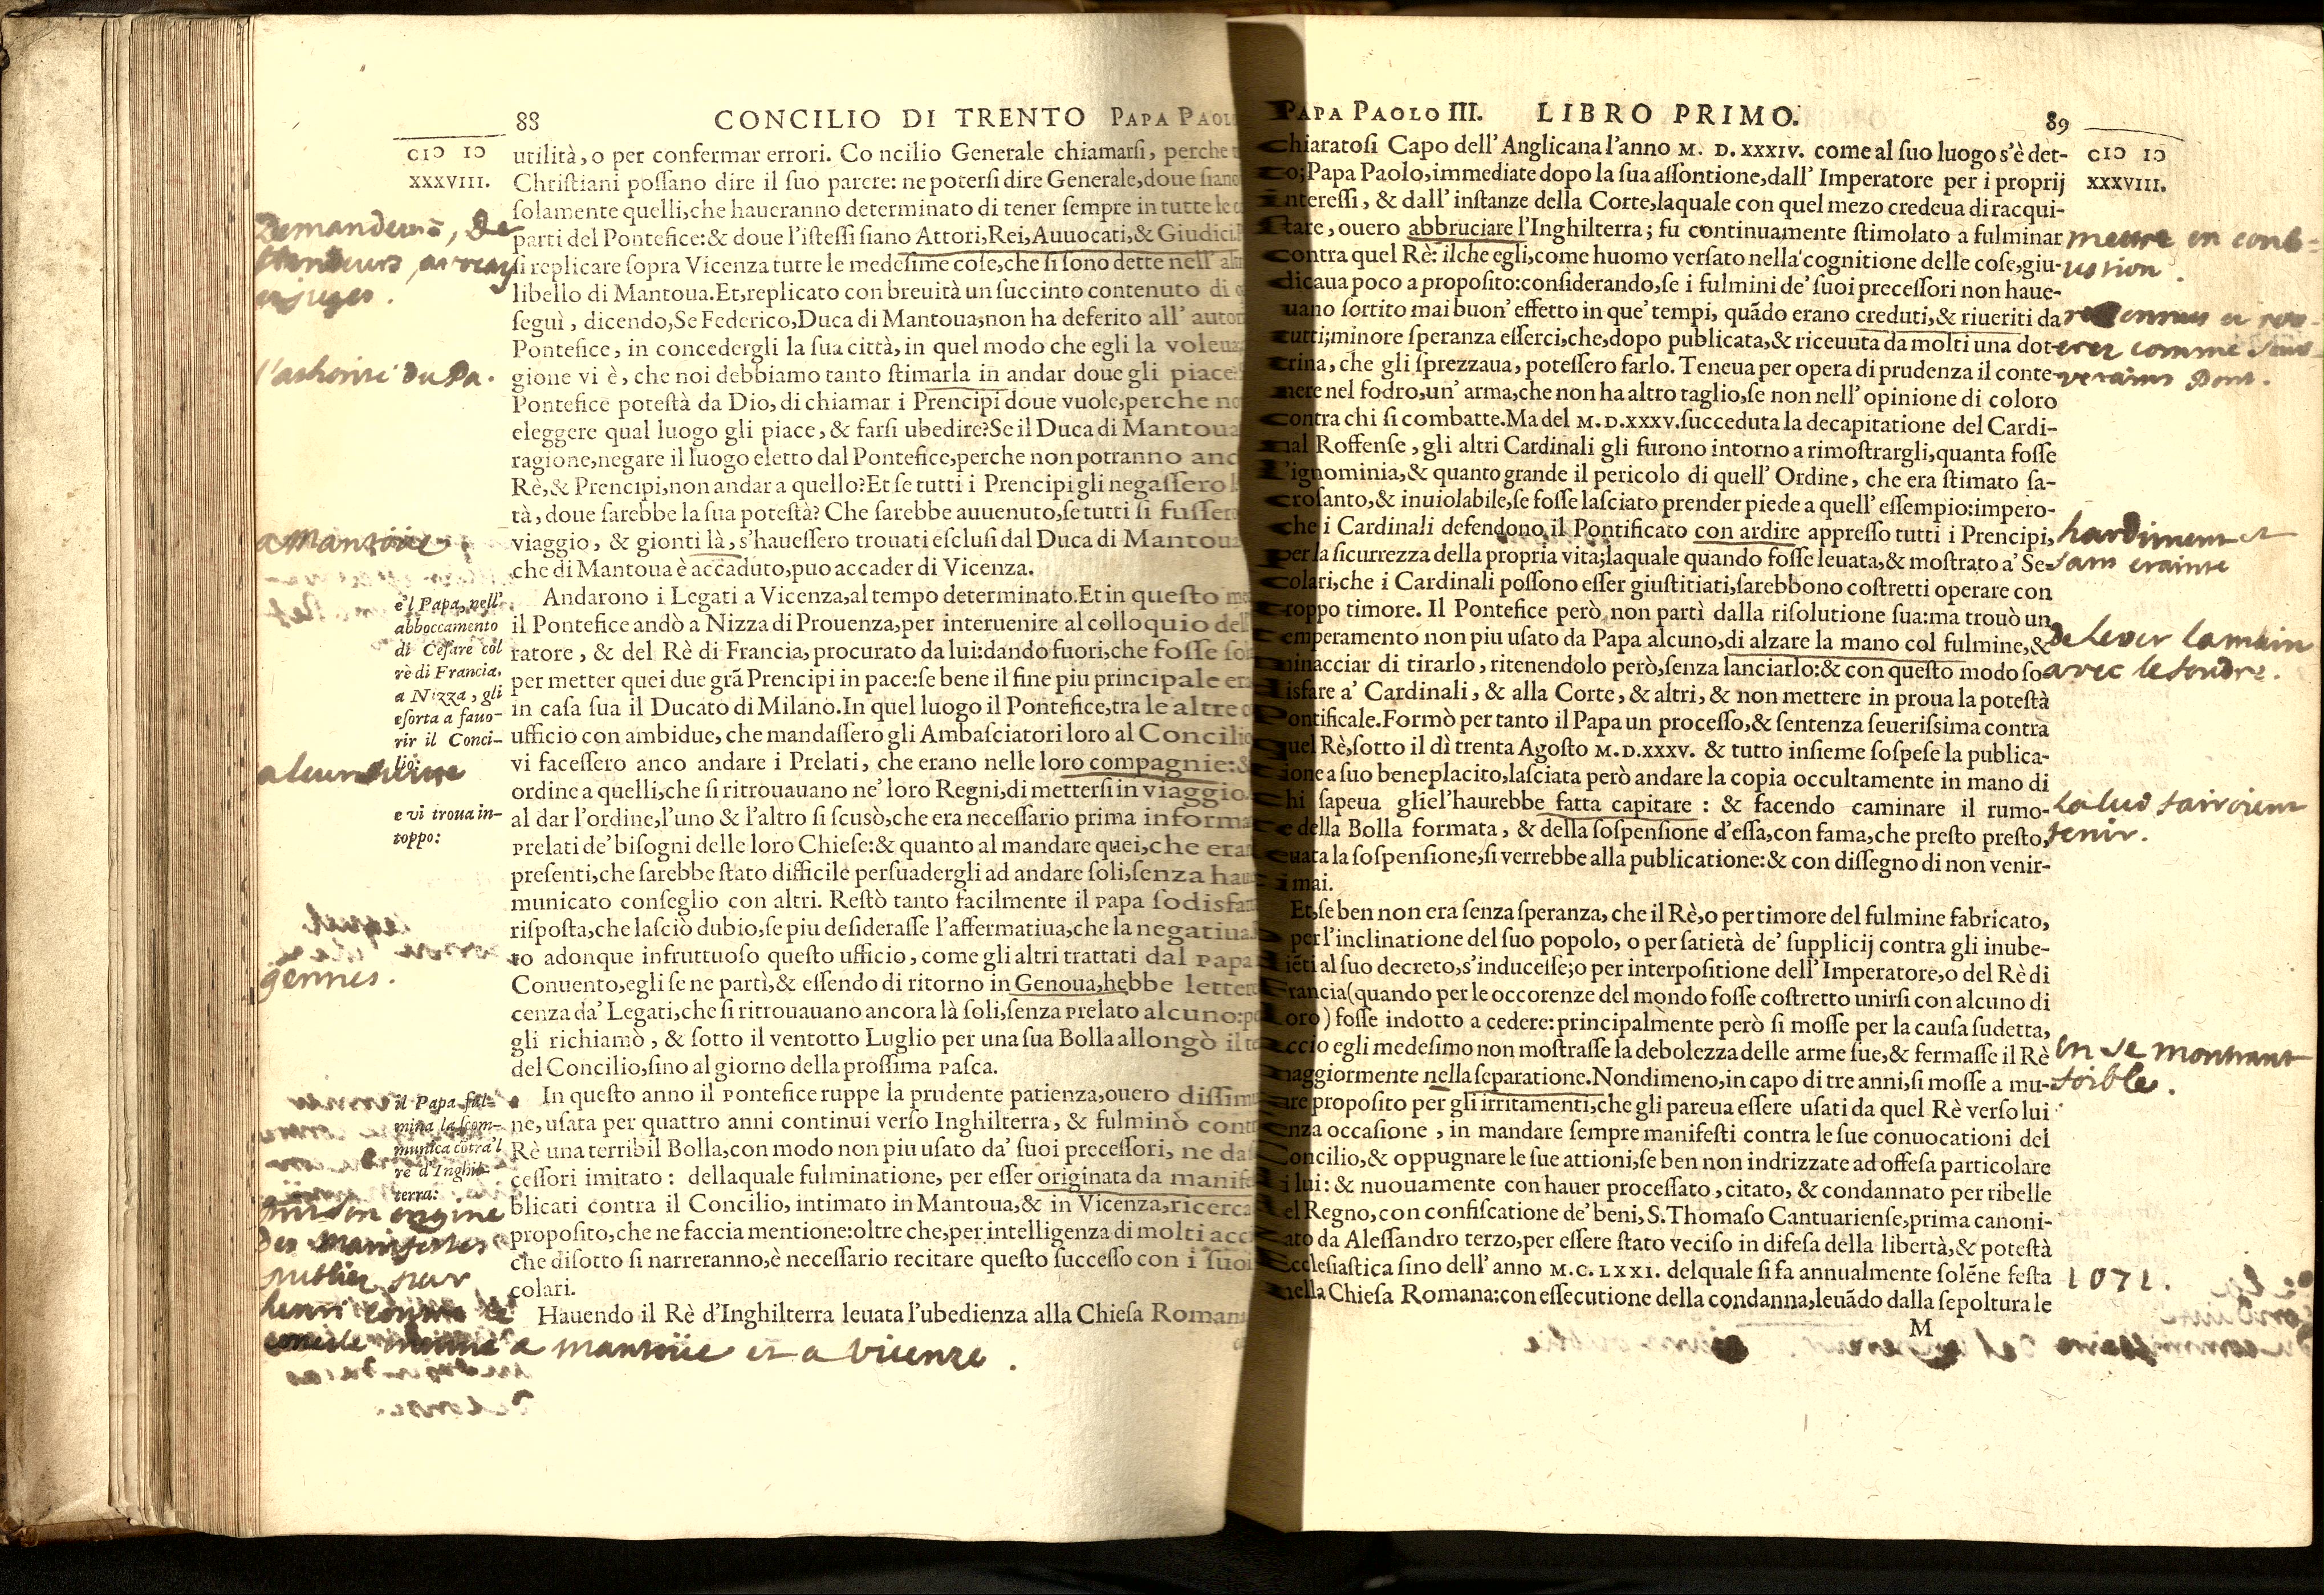 88 CONCILIO DI TRENTO PAPA PAOL
CIƆ IƆ
XXXVIII.
utilità, o per confermar errori. Co ncilio Generale chiamarſi, perche
Chriſtiani poſſano dire il ſuo parere: ne poterſi dire Generale, doue ſiano
ſolamente quelli, che haueranno determinato di tener ſempre in tutte le
parti del Pontefice: & doue l'iſteſſi ſiano Attori, Rei, Auuocati, & Giudici.
ſi replicare ſopra Vicenza tutte le medeſime coſe, che ſi ſono dette nell'
libello di Mantoua. Et, replicato con breuità un ſuccinto contenuto di
ſeguì, dicendo, Se Federico, Duca di Mantoua, non ha deferito all'
Pontefice, in concedergli la ſua città, in quel modo che egli la
gione vi è, che noi debbiamo tanto ſtimarla in andar doue gli
Pontefice poteſtà da Dio, di chiamar i Prencipi doue vuole, perche
eleggere qual luogo gli piace, & farſi ubedire? Se il Duca di Mantoua
ragione, negare il luogo eletto dal Pontefice, perche non potranno
Rè, & Prencipi, non andar a quello? Et ſe tutti i Prencipi gli negaſſero
tà, doue ſarebbe la ſua poteſtà? Che ſarebbe auuenuto, ſe tutti ſi
viaggio, & gionti là, s'haueſſero trouati eſcluſi dal Duca di Mantoua
che di Mantoua è accaduto, puo accader di Vicenza.
Andarono i Legati a Vicenza, al tempo determinato. Et in queſto
il Pontefice andò a Nizza di Prouenza, per interuenire al colloquio
ratore, & del Rè di Francia, procurato da lui: dando fuori, che foſſe
per metter quei due grã Prencipi in pace: ſe bene il fine piu principale
in caſa ſua il Ducato di Milano. In quel luogo il Pontefice, tra le altre
ufficio con ambidue, che mandaſſero gli Ambaſciatori loro al Concilio
vi faceſſero anco andare i Prelati, che erano nelle loro compagnie: &
ordine a quelli, che ſi ritrouauano ne' loro Regni, di metterſi in viaggio.
al dar l'ordine, l'uno & l'altro ſi ſcusò, che era neceſſario prima
Prelati de' biſogni delle loro Chieſe: & quanto al mandare quei, che
preſenti, che ſarebbe ſtato difficile perſuadergli ad andare ſoli, ſenza
municato conſeglio con altri. Reſtò tanto facilmente il Papa
riſpoſta, che laſciò dubio, ſe piu deſideraſſe l'affermatiua, che la negatiua.
to adonque infruttuoſo queſto ufficio, come gli altri trattati dal Papa
Conuento, egli ſe ne partì, & eſſendo di ritorno in Genoua, hebbe
cenza da' Legati, che ſi ritrouauano ancora là ſoli, ſenza Prelato alcuno:
gli richiamò, & ſotto il ventotto Luglio per una ſua Bolla allongò il
del Concilio, ſino al giorno della proſſima Paſca.
In queſto anno il Pontefice ruppe la prudente patienza, ouero
ne, uſata per quattro anni continui verſo Inghilterra, & fulminò
Rè una terribil Bolla, con modo non piu uſato da' ſuoi preceſſori, ne
ceſſori imitato: dellaquale fulminatione, per eſſer originata da
blicati contra il Concilio, intimato in Mantoua, & in Vicenza,
propoſito, che ne faccia mentione: oltre che, per intelligenza di molti
che diſotto ſi narreranno, è neceſſario recitare queſto ſucceſſo con i
colari.
Hauendo il Rè d'Inghilterra leuata l'ubedienza alla Chieſa
e'l Papa, nell'
abboccamento
di Ceſare col
rè di Francia,
a Nizza, gli
eſorta a fauo-
rir il Conci-
lio:
e vi troua in-
toppo:
il Papa ful-
mina la ſcom-
munica cõtra'l
rè d'Inghil-
terra:
a Mantoüe
gennes.
publiez par
a mantoüe et a vicenze.
PAPA PAOLO III. LIBRO PRIMO. 89
CIƆ IƆ
XXXVIII.
chiaratoſi Capo dell' Anglicana l'anno M. D. XXXIV. come al ſuo luogo s'è det-
to; Papa Paolo, immediate dopo la ſua aſſontione, dall' Imperatore per i proprij
intereſſi, & dall' inſtanze della Corte, laquale con quel mezo credeua di racqui-
ſtare, ouero abbruciare l'Inghilterra; fu continuamente ſtimolato a fulminar
contra quel Rè: ilche egli, come huomo verſato nella cognitione delle coſe, giu-
dicaua poco a propoſito: conſiderando, ſe i fulmini de' ſuoi preceſſori non haue-
uano ſortito mai buon' effetto in que' tempi, quãdo erano creduti, & riueriti da
tutti; minore ſperanza eſſerci, che, dopo publicata, & riceuuta da molti una dot-
trina, che gli ſprezzaua, poteſſero farlo. Teneua per opera di prudenza il conte-
nere nel fodro, un' arma, che non ha altro taglio, ſe non nell' opinione di coloro
contra chi ſi combatte. Ma del M. D. XXXV. ſucceduta la decapitatione del Cardi-
nal Roffenſe, gli altri Cardinali gli furono intorno a rimoſtrargli, quanta foſſe
l'ignominia, & quanto grande il pericolo di quell' Ordine, che era ſtimato ſa-
croſanto, & inuiolabile, ſe foſſe laſciato prender piede a quell' eſſempio: impero-
che i Cardinali defendono il Pontificato con ardire appreſſo tutti i Prencipi,
per la ſicurrezza della propria vita; laquale quando foſſe leuata, & moſtrato a' Se-
colari, che i Cardinali poſſono eſſer giuſtitiati, ſarebbono coſtretti operare con
troppo timore. Il Pontefice però, non partì dalla riſolutione ſua: ma trouò un
temperamento non piu uſato da Papa alcuno, di alzare la mano col fulmine, &
minacciar di tirarlo, ritenendolo però, ſenza lanciarlo: & con queſto modo ſo-
disfare a' Cardinali, & alla Corte, & altri, & non mettere in proua la poteſtà
Pontificale. Formò per tanto il Papa un proceſſo, & ſentenza ſeueriſsima contra
quel Rè, ſotto il dì trenta Agoſto M. D. XXXV. & tutto inſieme ſoſpeſe la publica-
tione a ſuo beneplacito, laſciata però andare la copia occultamente in mano di
chi ſapeua gliel'haurebbe fatta capitare: & facendo caminare il rumo-
re della Bolla formata, & della ſoſpenſione d'eſſa, con fama, che preſto preſto,
leuata la ſoſpenſione, ſi verrebbe alla publicatione: & con diſſegno di non venir-
ui mai.
Et, ſe ben non era ſenza ſperanza, che il Rè, o per timore del fulmine fabricato,
o per l'inclinatione del ſuo popolo, o per ſatietà de' ſupplicij contra gli inube-
diẽti al ſuo decreto, s'induceſſe; o per interpoſitione dell' Imperatore, o del Rè di
Francia (quando per le occorenze del mondo foſſe coſtretto unirſi con alcuno di
loro) foſſe indotto a cedere: principalmente però ſi moſſe per la cauſa ſudetta,
acciò egli medeſimo non moſtraſſe la debolezza delle arme ſue, & fermaſſe il Rè
maggiormente nella ſeparatione. Nondimeno, in capo di tre anni, ſi moſſe a mu-
tare propoſito per gli irritamenti, che gli pareua eſſere uſati da quel Rè verſo lui
ſenza occaſione, in mandare ſempre manifeſti contra le ſue conuocationi del
Concilio, & oppugnare le ſue attioni, ſe ben non indrizzate ad offeſa particolare
di lui: & nuouamente con hauer proceſſato, citato, & condannato per ribelle
del Regno, con confiſcatione de' beni, S. Thomaſo Cantuarienſe, prima canoni-
zato da Aleſſandro terzo, per eſſere ſtato vcciſo in difeſa della libertà, & poteſtà
Eccleſiaſtica ſino dell' anno M. C. LXXI. delquale ſi fa annualmente ſolẽne feſta
nella Chieſa Romana: con eſſecutione della condanna, leuãdo dalla ſepoltura le
M
mettre en comb-
ustion.
hardiment et
sans crainte
de lever la main
avec le foudre.
tenir.
en se montrant
foible.
1071.